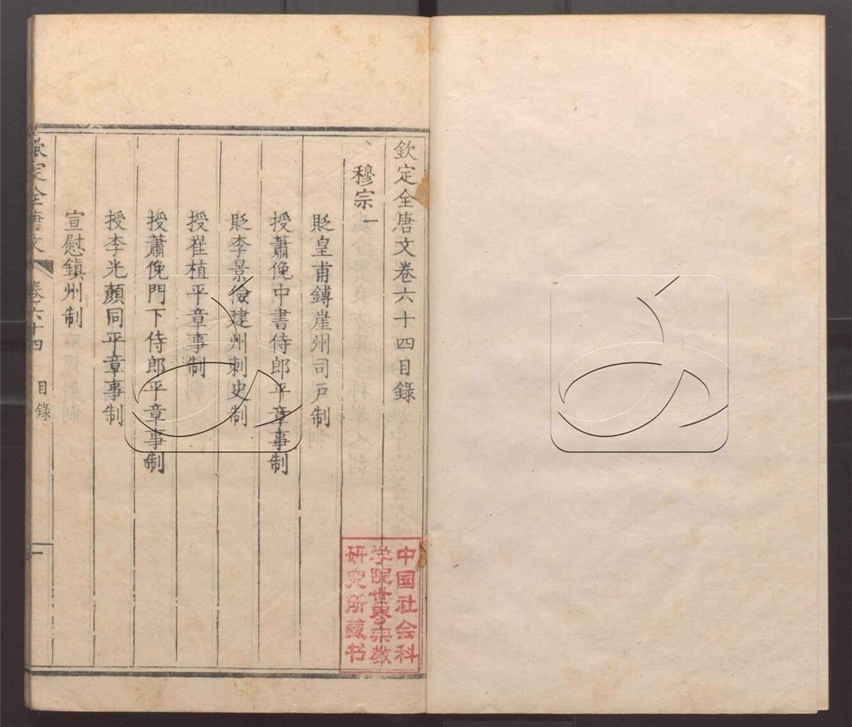 欽定全唐文卷六十四目錄
穆宗一
貶皇甫鎛崖州司戶制
授蕭俛中書侍郎平章事制
貶李景儉建州刺史制
授崔植平章事制
授蕭俛門下侍郎平章事制
授李光顏同平章事制
宣慰鎮州制
欽定全唐文
卷六十四 目錄
一
中国社会科
学院世界宗教
研究所藏书